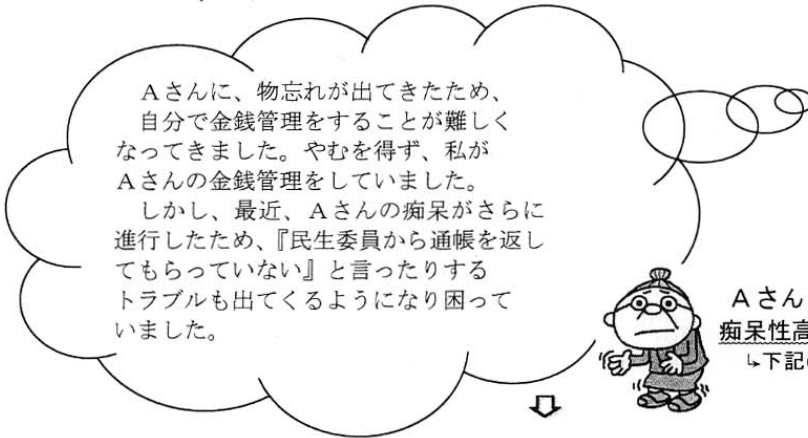 Aさんに、物忘れが出てきたため、
自分で金銭管理をすることが難しく
なってきました。やむを得ず、私が
Aさんの金銭管理をしていました。
しかし、最近、Aさんの痴呆がさらに
進行したため、『民生委員から通帳を返し
てもらっていない』と言ったりする
トラブルも出てくるようになり困って
いました。
Aさん
痴呆性高
↳下記